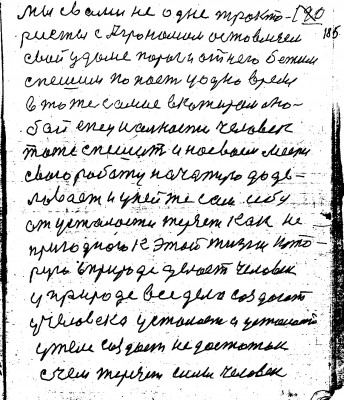 мы с вами не одне тракто- 180
ристы с Агрономом оставляем 186
свой у доме порог и от него бежим
спешим по поет у одно время
в то же самие в котором лю-
бой специальности человек
тоже спешит и на своем месте
свою работу начатую до де-
ловает и у ней же сам себу
от усталости теряет как не
пригодного к этой жизни кото-
рую в природе делает человек
у природе все дело создаёт
у человека усталость и усталость
у теле создает недостаток
с чем теряет силы человек